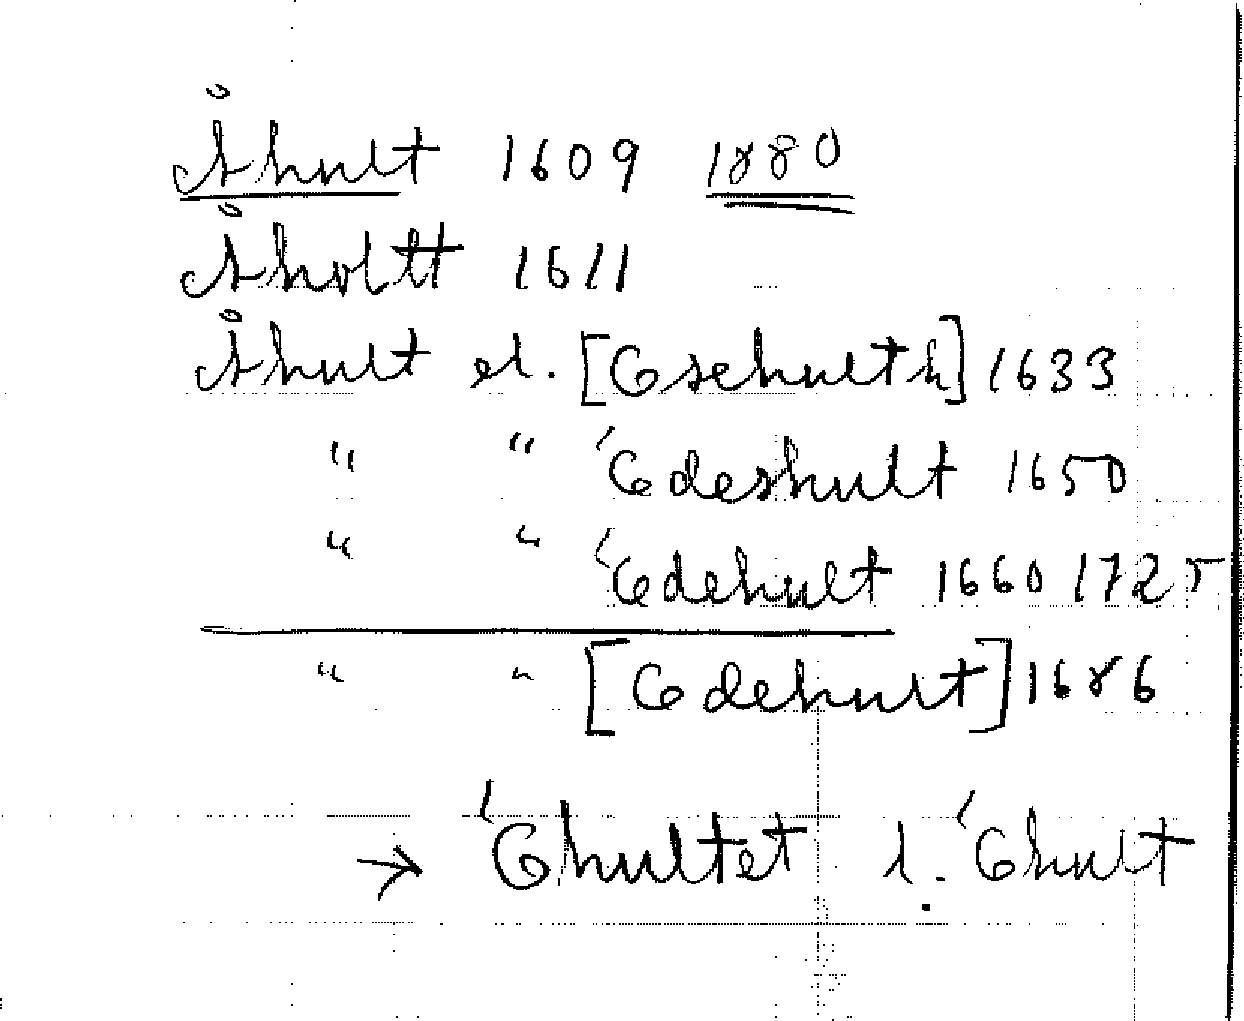 Åhult 1609 1880
Åholtt 1611
Åhult el. [Gsehulth] 1633
" " 'Gdeshult 1650
" " 'Gdehult 1660 1725
" " [Gdehult] 1686
→ 'Ghultet l. 'Ghult